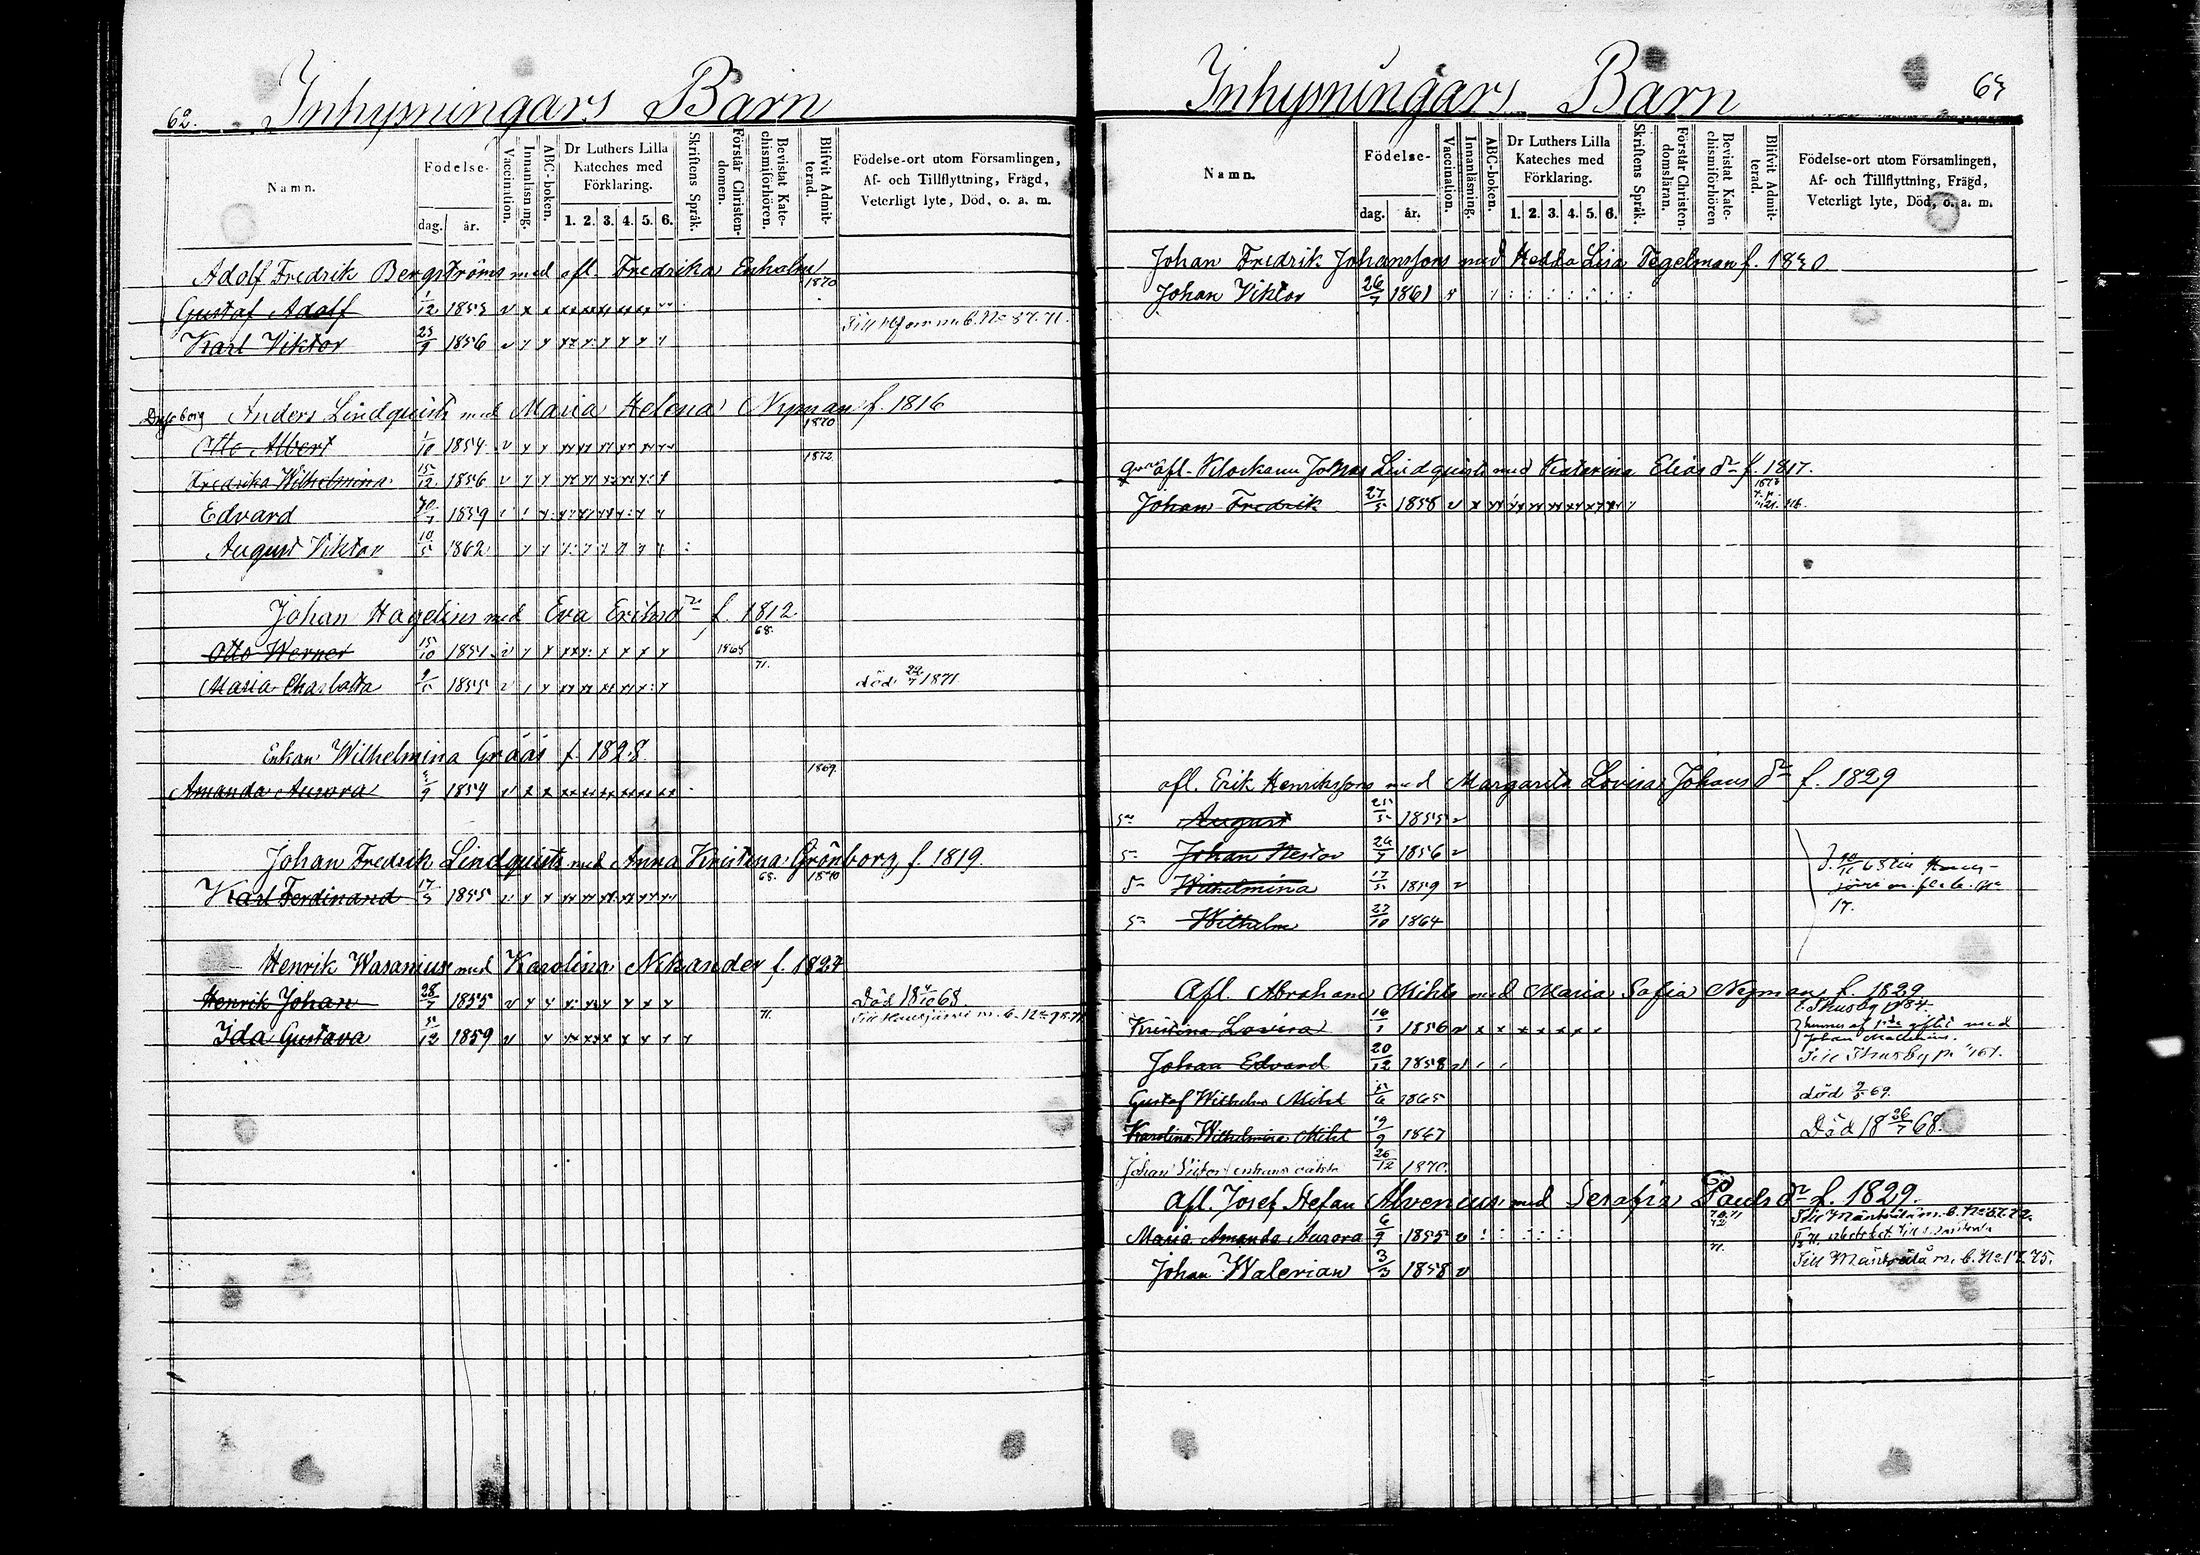 62. Inhysningars Barn
Namn.
Födelse-
dag. år.
Vaccination.
Innanläsning.
ABC-boken.
Dr Luthers Lilla
Kateches med
Förklaring.
1. 2. 3. 4. 5. 6.
Skriftens Språk.
Förstår Christen-
domen.
Bevistat Kate-
chismiförhören.
Blifvit Admit-
terad.
Födelse-ort utom Församlingen,
Af- och Tillflyttning, Frägd,
Veterligt lyte, Död, o. a. m.
Adolf Fredrik Bergströms med afl. Fredrika Enholm
Gustaf Adolf 1/12 1853 1870
Karl Viktor 23/9 1856
Anders Lindquists med Maria Helena Nyman f. 1816
Otto Albert 1/10 1854 1870
Fredrika Wilhelmina 15/12 1856 1872
Edvard 1859
August Viktor 10/5 1862
Johan Hagelius med Eva Eriksdr f. 1812
Otto Werner 15/10 1851 1868 68.
Maria Charlotta 1855 71. död 22/7 1871
Enkan Wilhelmina Grääs f. 1828
Amanda Aurora 1854 1869
Johan Fredrik Lindquists med Anna Kristina Grönborg f. 1819.
Karl Ferdinand 17/3 1855 68. 1870
Henrik Wasanius med Karolina Nikander f. 1827
Henrik Johan 28/7 1855 Död 18 68.
Ida Gustava 5/12 1859 71.
Inhysningars Barn 63
Namn.
Födelse-
dag. år.
Vaccination.
Innanläsning.
ABC-boken.
Dr Luthers Lilla
Kateches med
Förklaring.
1. 2. 3. 4. 5. 6.
Skriftens Språk.
Förstår Christen-
domsläran.
Bevistat Kate-
chismiförhören
Blifvit Admit-
terad.
Födelse-ort utom Församlingen,
Af- och Tillflyttning, Frägd,
Veterligt lyte, Död, o. a. m.
Johan Fredrik Johanssons med Hedda Lisa Tegelman f. 1830
Johan Viktor 26/7 1861
afl. Klockaren Johas Lindquists med Katarina Eliasdr f. 1817.
Johan Fredrik 27/5 1858
afl. Erik Henrikssons med Margareta Lovisa Johansdr f. 1829
August 25/5 1855
Johan Nestor 26/7 1856
Wilhelmina 17/5 1859
Wilhelm 23/10 1864
17.
Afl. Abraham Mihls med Maria Sofia Nyman f. 1829
Kristina Lovisa 1856
Johan Edvard 20/12 1858
Gustaf Wilhelm Mihl 5/6 1865 död 69.
Karolina Wilhelmina Mihl 19/9 1867 Död 18 26/7 68.
Johan Viktor 26/12 1870.
Afl. Josef Stefan Alvenius med Serafia Paulsdr f. 1829.
Maria Amanda Aurora 6/9 1855
Johan Walerian 3/3 1858 71. Till Mäntsälä m. b. No 17. 75.